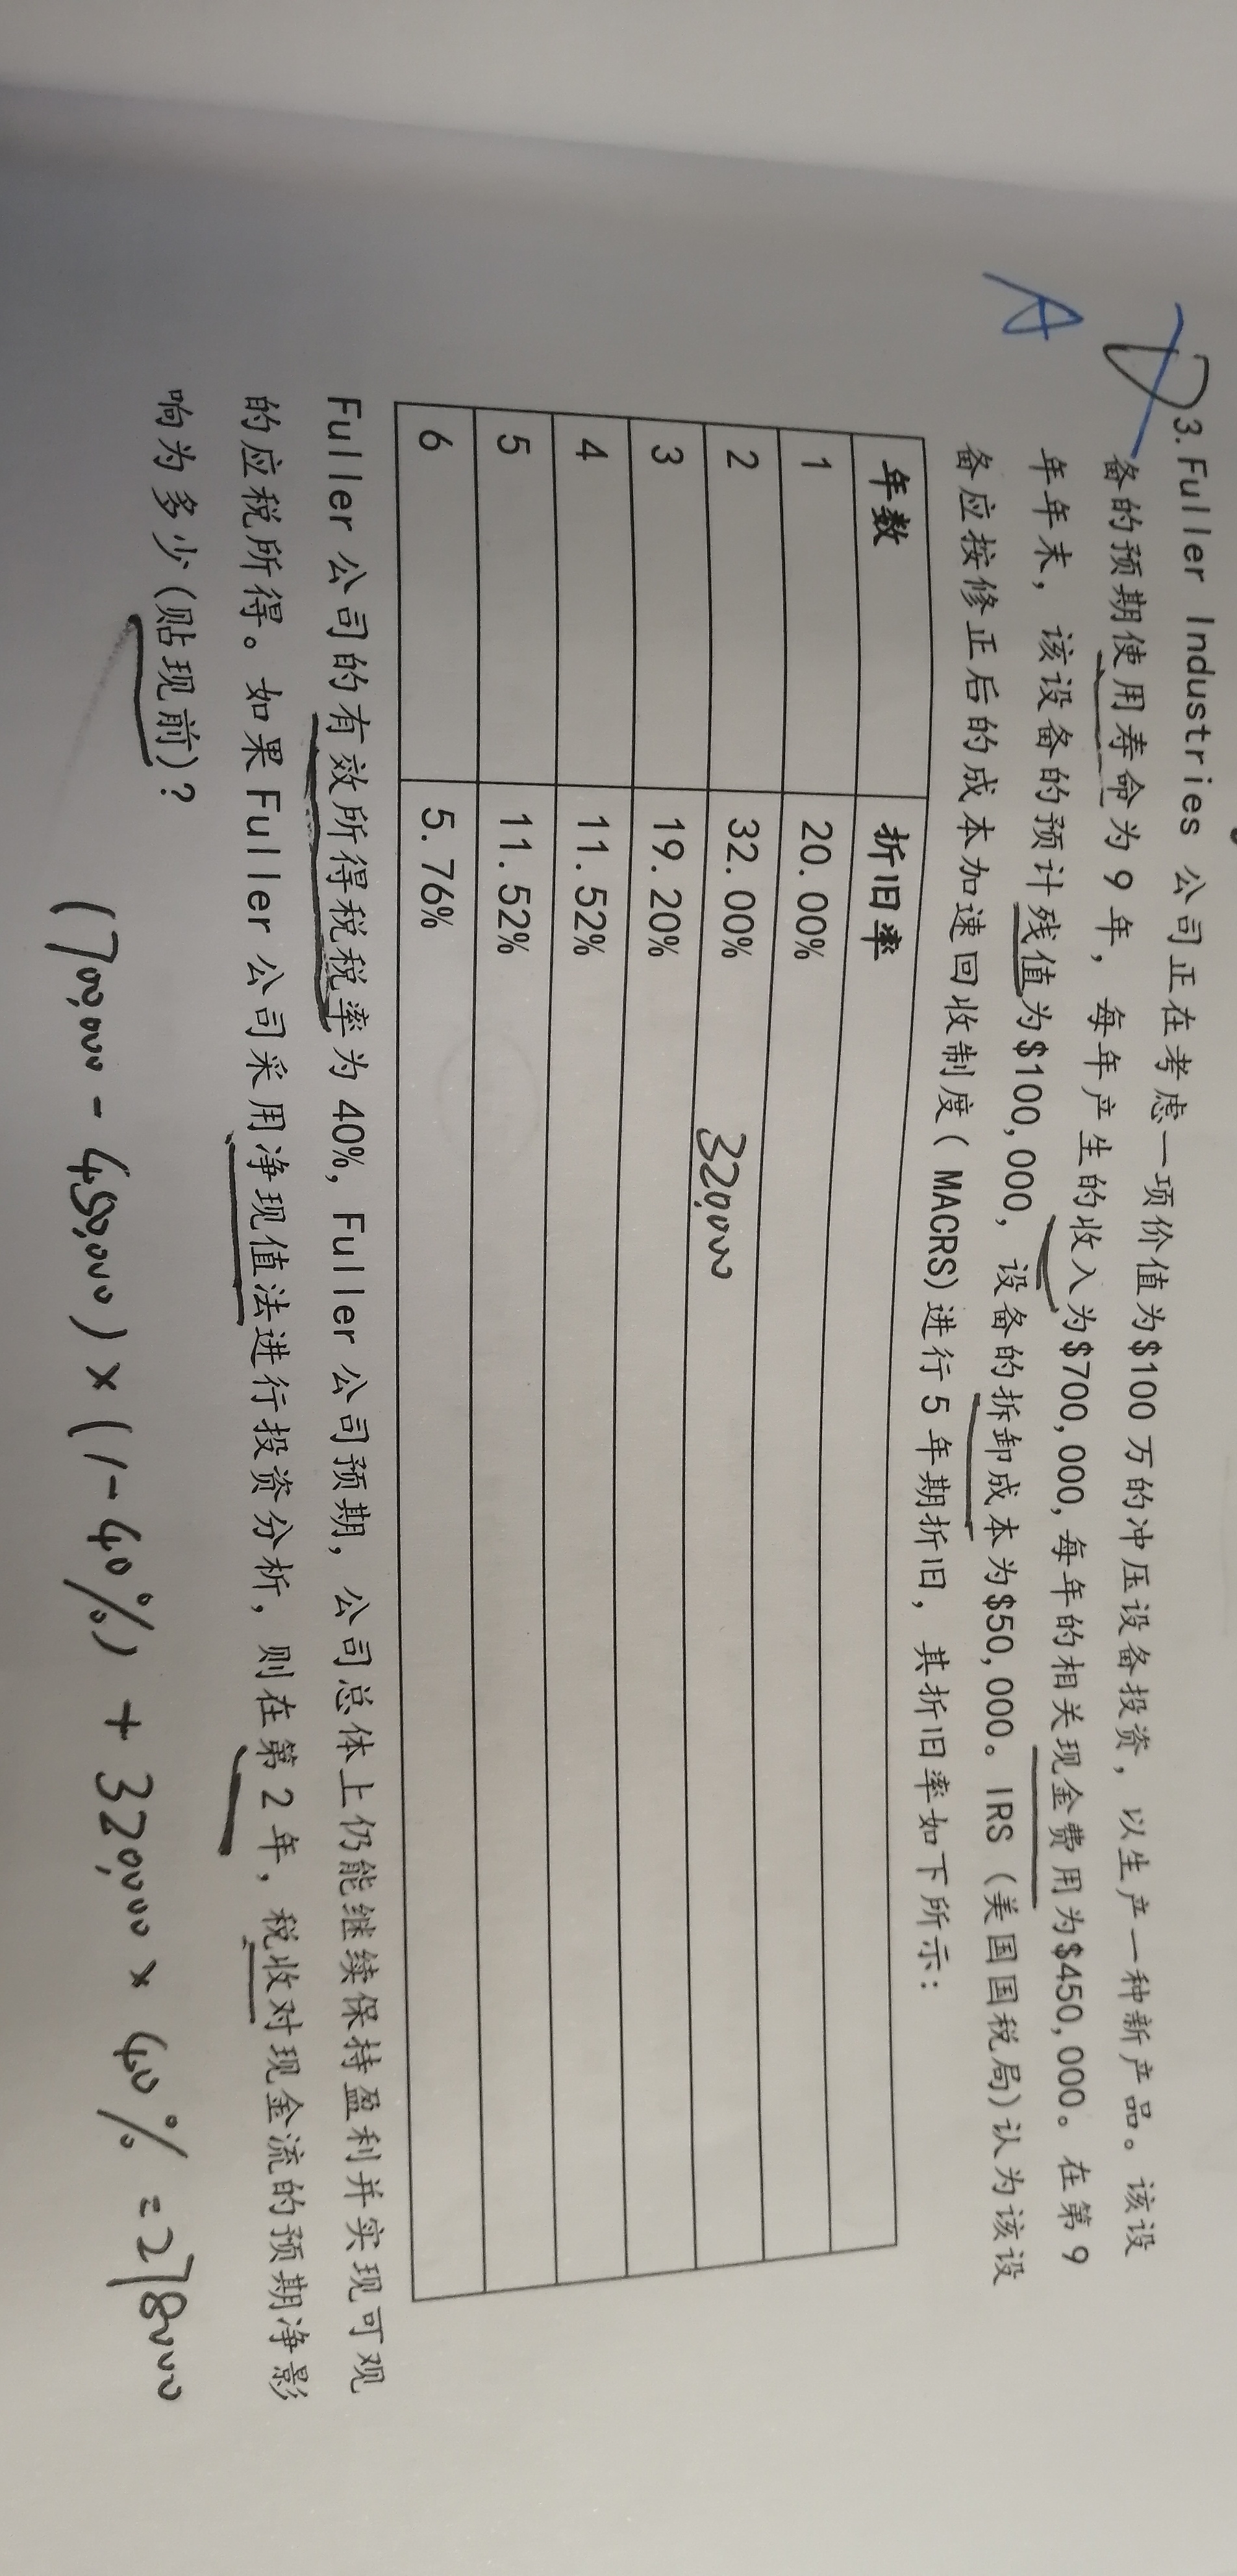 3.Fuller Industries 公司正在考虑一项价值为$100 万的冲压设备投资，以生产一种新产品。该设
备的预期使用寿命为 9 年，每年产生的收入为$700,000,每年的相关现金费用为$450,000。在第 9
A
年年末，该设备的预计残值为$100,000，设备的拆卸成本为$50,000。IRS（美国国税局)认为该设
备应按修正后的成本加速回收制度( MACRS)进行 5 年期折旧，其折旧率如下所示：
年数 折旧率
1 20.00%
2 32.00% 320,000
3 19.20%
4 11.52%
5 11.52%
6 5.76%
Fuller 公司的有效所得税税率为 40%, Fuller 公司预期，公司总体上仍能继续保持盈利并实现可观
的应税所得。如果 Fuller 公司采用净现值法进行投资分析，则在第 2 年，税收对现金流的预期净影
响为多少(贴现前)?
(700,000 - 450,000) × (1- 40%) + 320,000 × 40% = 278000